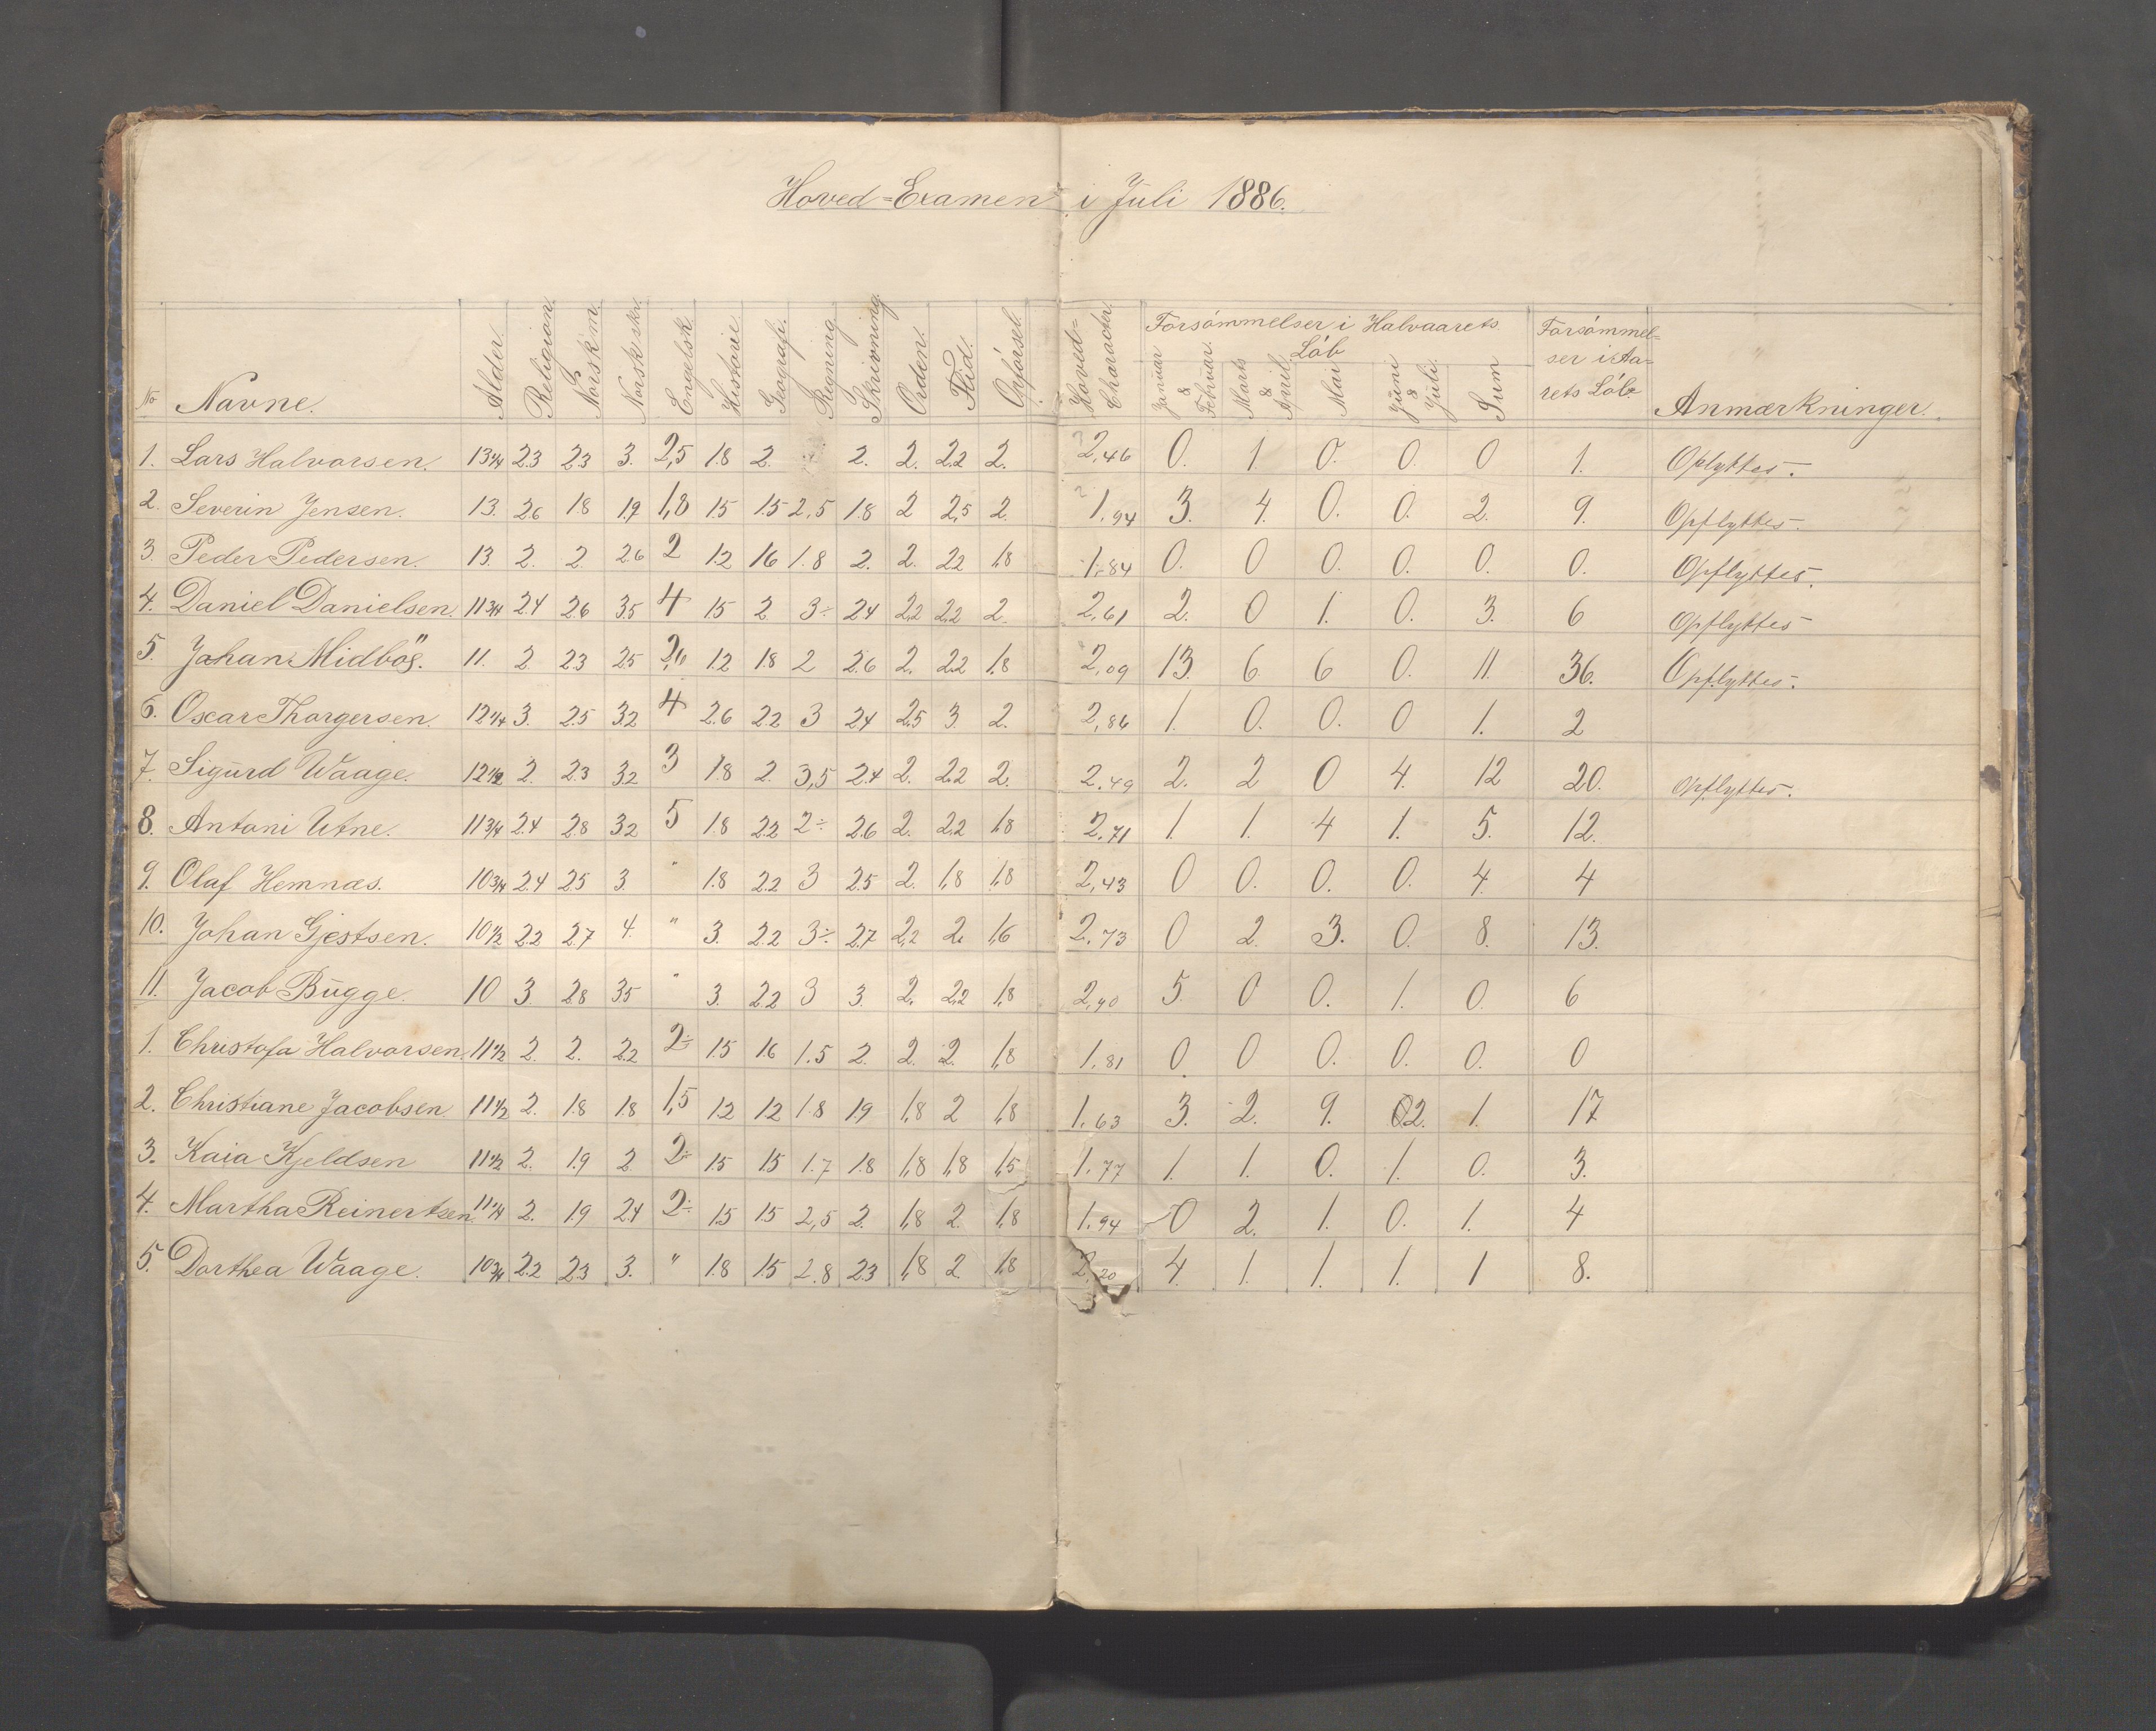 Hoved-Examen i Juli 1886.
No Navne. Alder. Religion Norsk m. Norsk skr. Engelsk Historie Geografi. Regning Skrivning Orden. Flid. Opførsel. Hoved-Character. Forsømmelser i Halvaarets Løb Januar & Februar. Marts & April. Mai Juni & Juli. Sum Forsømmelser i Aarets Løb. Anmærkninger.
1. Lars Halvorsen. 13 1/4 2.3 2.3 3. 2,5 1.8 2. 2. 2. 2,2 2. 2,46 0. 1 0. 0. 0 1. Opflyttes.
2. Severin Jensen. 13. 2.6 1.8 1.9 1,8 1.5 1.5 2,5 1.8 2 2,5 2. 1.94 3. 4. 0. 0. 2. 9. Opflyttes.
3. Peder Pedersen. 13. 2. 2. 2.6 2 1.2 1.6 1.8 2. 2. 2.2 1,8 1.84 0. 0 0. 0. 0. 0. Opflyttes.
4. Daniel Danielsen. 11 3/4 2.4 2.6 3.5 4 1.5 2. 3÷ 2.4 2,2 2,2 2. 2,61 2. 0 1. 0. 3. 6 Opflyttes
5. Johan Midbøe. 11. 2. 2.3 2.5 1.2 1.8 2 2.6 2. 2.2 1,8 2,09 13. 6. 6 0. 11. 36. Opflyttes.
6. Oscar Thorgersen. 12 1/4 3. 2.5 3.2 4 2.6 2.2 3 2.4 2,5 3. 2. 2,86 1. 0. 0. 0 1. 2
7. Sigurd Waage. 12 1/2 2. 2.3 3.2 3 1.8 2. 3,5 2.4 2. 2.2 2. 2.49 2. 2 0 4. 12 20. Opflyttes.
8. Antoni Utne. 11 3/4 2.4 2.8 3.2 5 1.8 2.2 2÷ 2.6 2. 2.2 1,8 2.71 1 1. 4 1. 5. 12.
9. Olaf Hemnæs. 10 3/4 2.4 2.5 3. " 1.8 2.2 3 2.5 2. 1,8 1,8 2,43 0 0. 0. 0. 4. 4
10. Johan Gjestsen. 10 1/2 2.2 2.7 4. " 3. 2.2 3÷ 2.7 2,2 2. 1,6 2.73 0 2. 3. 0. 8. 13.
11. Jacob Bugge. 10 3. 2.8 3.5 " 3. 2.2 3 3. 2. 2,2 1,8 2,90 5. 0 0. 1. 0. 6
1. Christofa Halvorsen. 11 1/2 2. 2. 2.2 2÷ 1.5 1.6 1.5 2. 2. 2. 1,8 1.81 0. 0 0. 0. 0. 0
2. Christiane Jacobsen 11 1/2 2. 1.8 1.8 1,5 1.2 1.2 1.8 1.9 1,8 2 1,8 1.63 3. 2. 9. 2. 1. 17
3. Kaia Kjeldsen 11 1/2 2. 1.9 2. 2÷ 1.5 1.5 1.7 1.8 1,8 1,8 1,5 1.77 1. 1. 0. 1. 0. 3.
4. Martha Reinertsen. 11 1/4 2. 1.9 2.4 2÷ 1.5 1.5 2,5 2. 1,8 2. 1,8 1.94 0 2. 1. 0. 1. 4
5. Dorthea Waage. 10 3/4 2.2 2.3 3. " 1.8 1.5 2.8 2.3 1,8 2. 1,8 2,20 4. 1. 1. 1. 1 8.